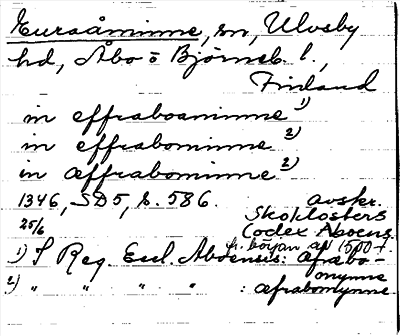 Euraåminne, sn, Ulvsby
hd, Åbo o Björneb. l.,
Finland
in effraboaminne 1)
in effrabominne 2)
in æffrabominne 2)
1346, SD5, s. 586. avskr.
25/6 Skoklosters
Codex Aboens
fr. början af 1500-t.
1) I Reg. Eccl. Aboensis: Æfrabo-
onymne
2) " " " " : æfrabomynne